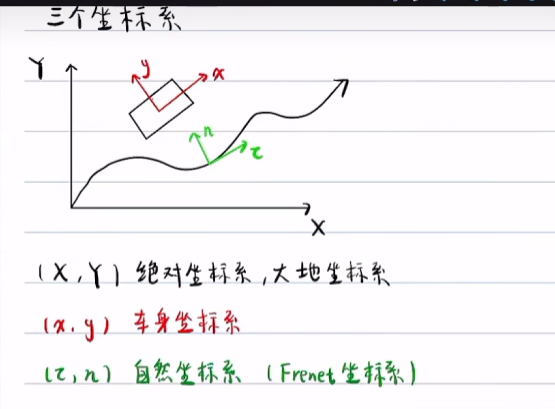 三个坐标系
Y
y
x
n
τ
X
(X,Y) 绝对坐标系,大地坐标系
(x.y) 车身坐标系
(τ,n) 自然坐标系 (Frenet坐标系)